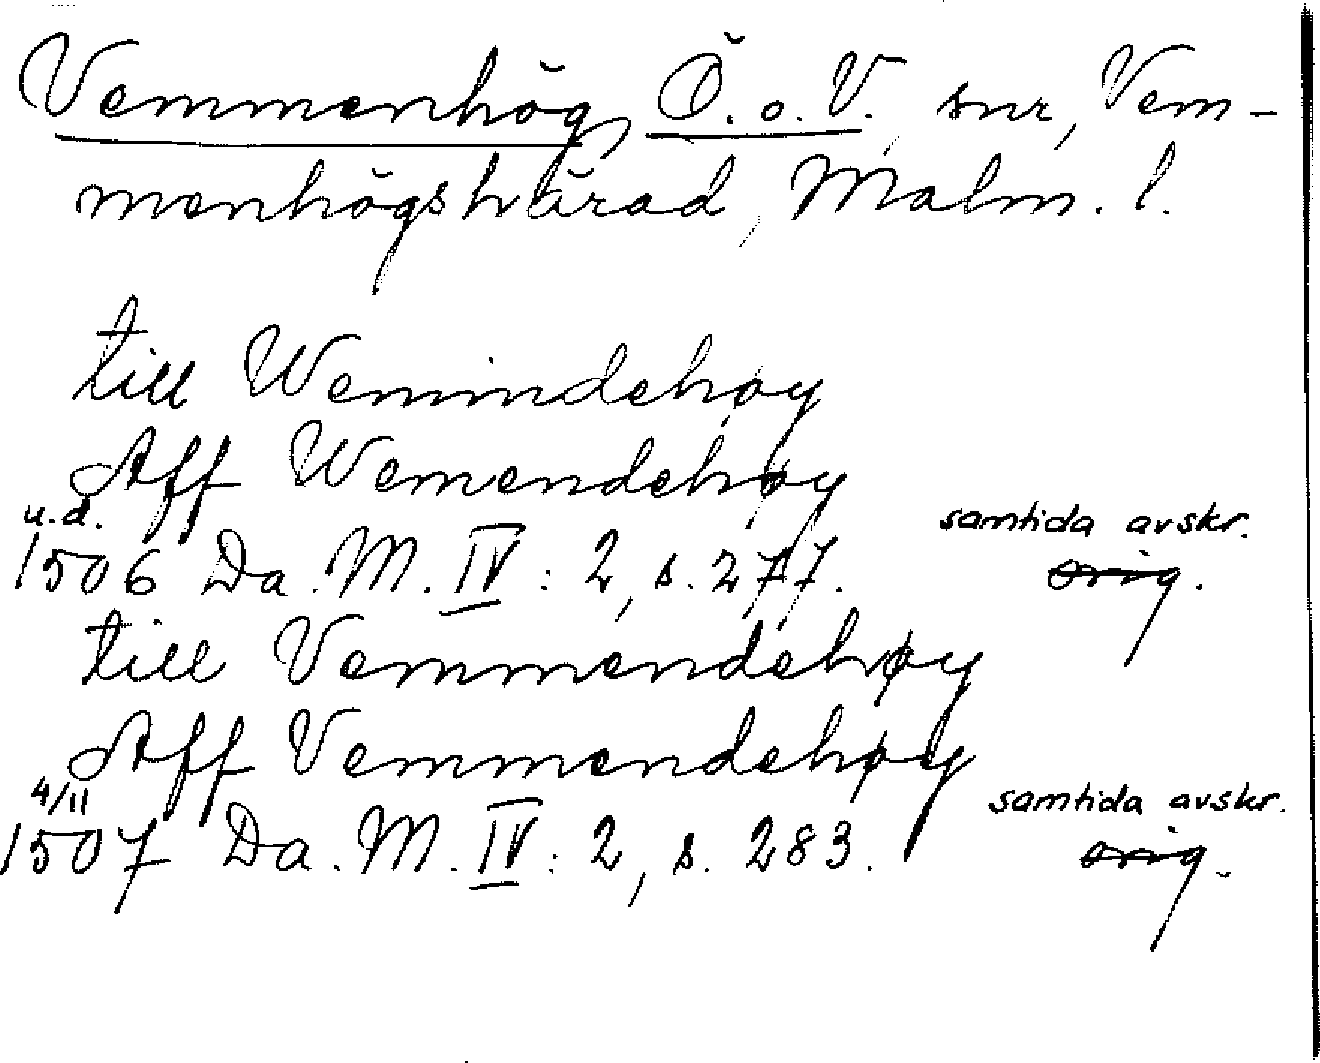 Vemmenhög, Ö. o. V. snr, Vem-
menhögs härad, Malm. l.
till Wemindehøy
Aff Wemendehøy
u.d. samtida avskr.
1506 Da. M. IV: 2, s. 277. orig.
till Vemmendehøy
Aff Vemmendehøy
4/11 samtida avskr.
1507 Da. M. IV: 2, s. 283. orig.